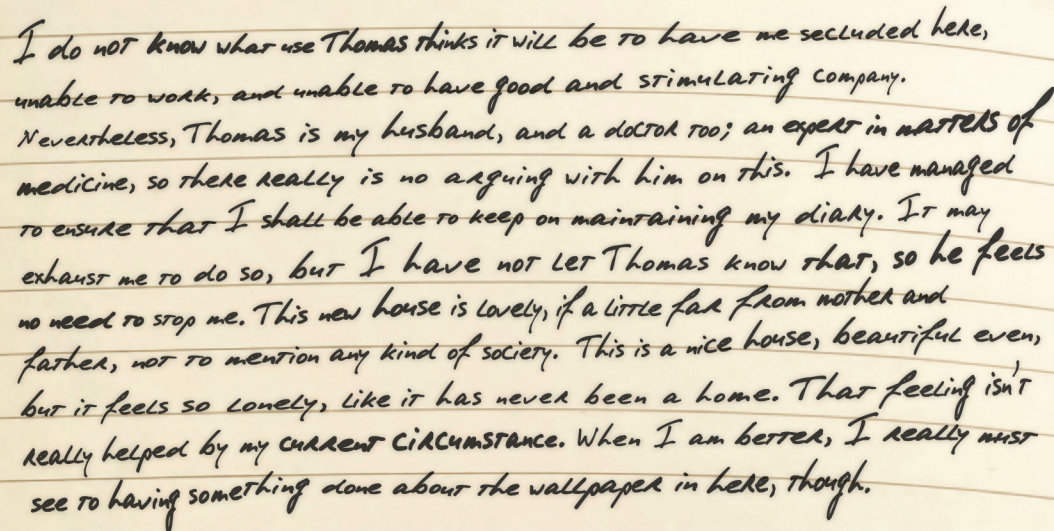 I do not know what use Thomas thinks it will be to have me secluded here,
unable to work, and unable to have good and stimulating company.
Nevertheless, Thomas is my husband, and a doctor too; an expert in matters of
medicine, so there really is no arguing with him on this. I have managed
to ensure that I shall be able to keep on maintaining my diary. It may
exhaust me to do so, but I have not let Thomas know that, so he feels
no need to stop me. This new house is lovely, if a little far from mother and
father, not to mention any kind of society. This is a nice house, beautiful even,
but it feels so lonely, like it has never been a home. That feeling isn't
really helped by my current circumstance. When I am better, I really must
see to having something done about the wallpaper in here, though.